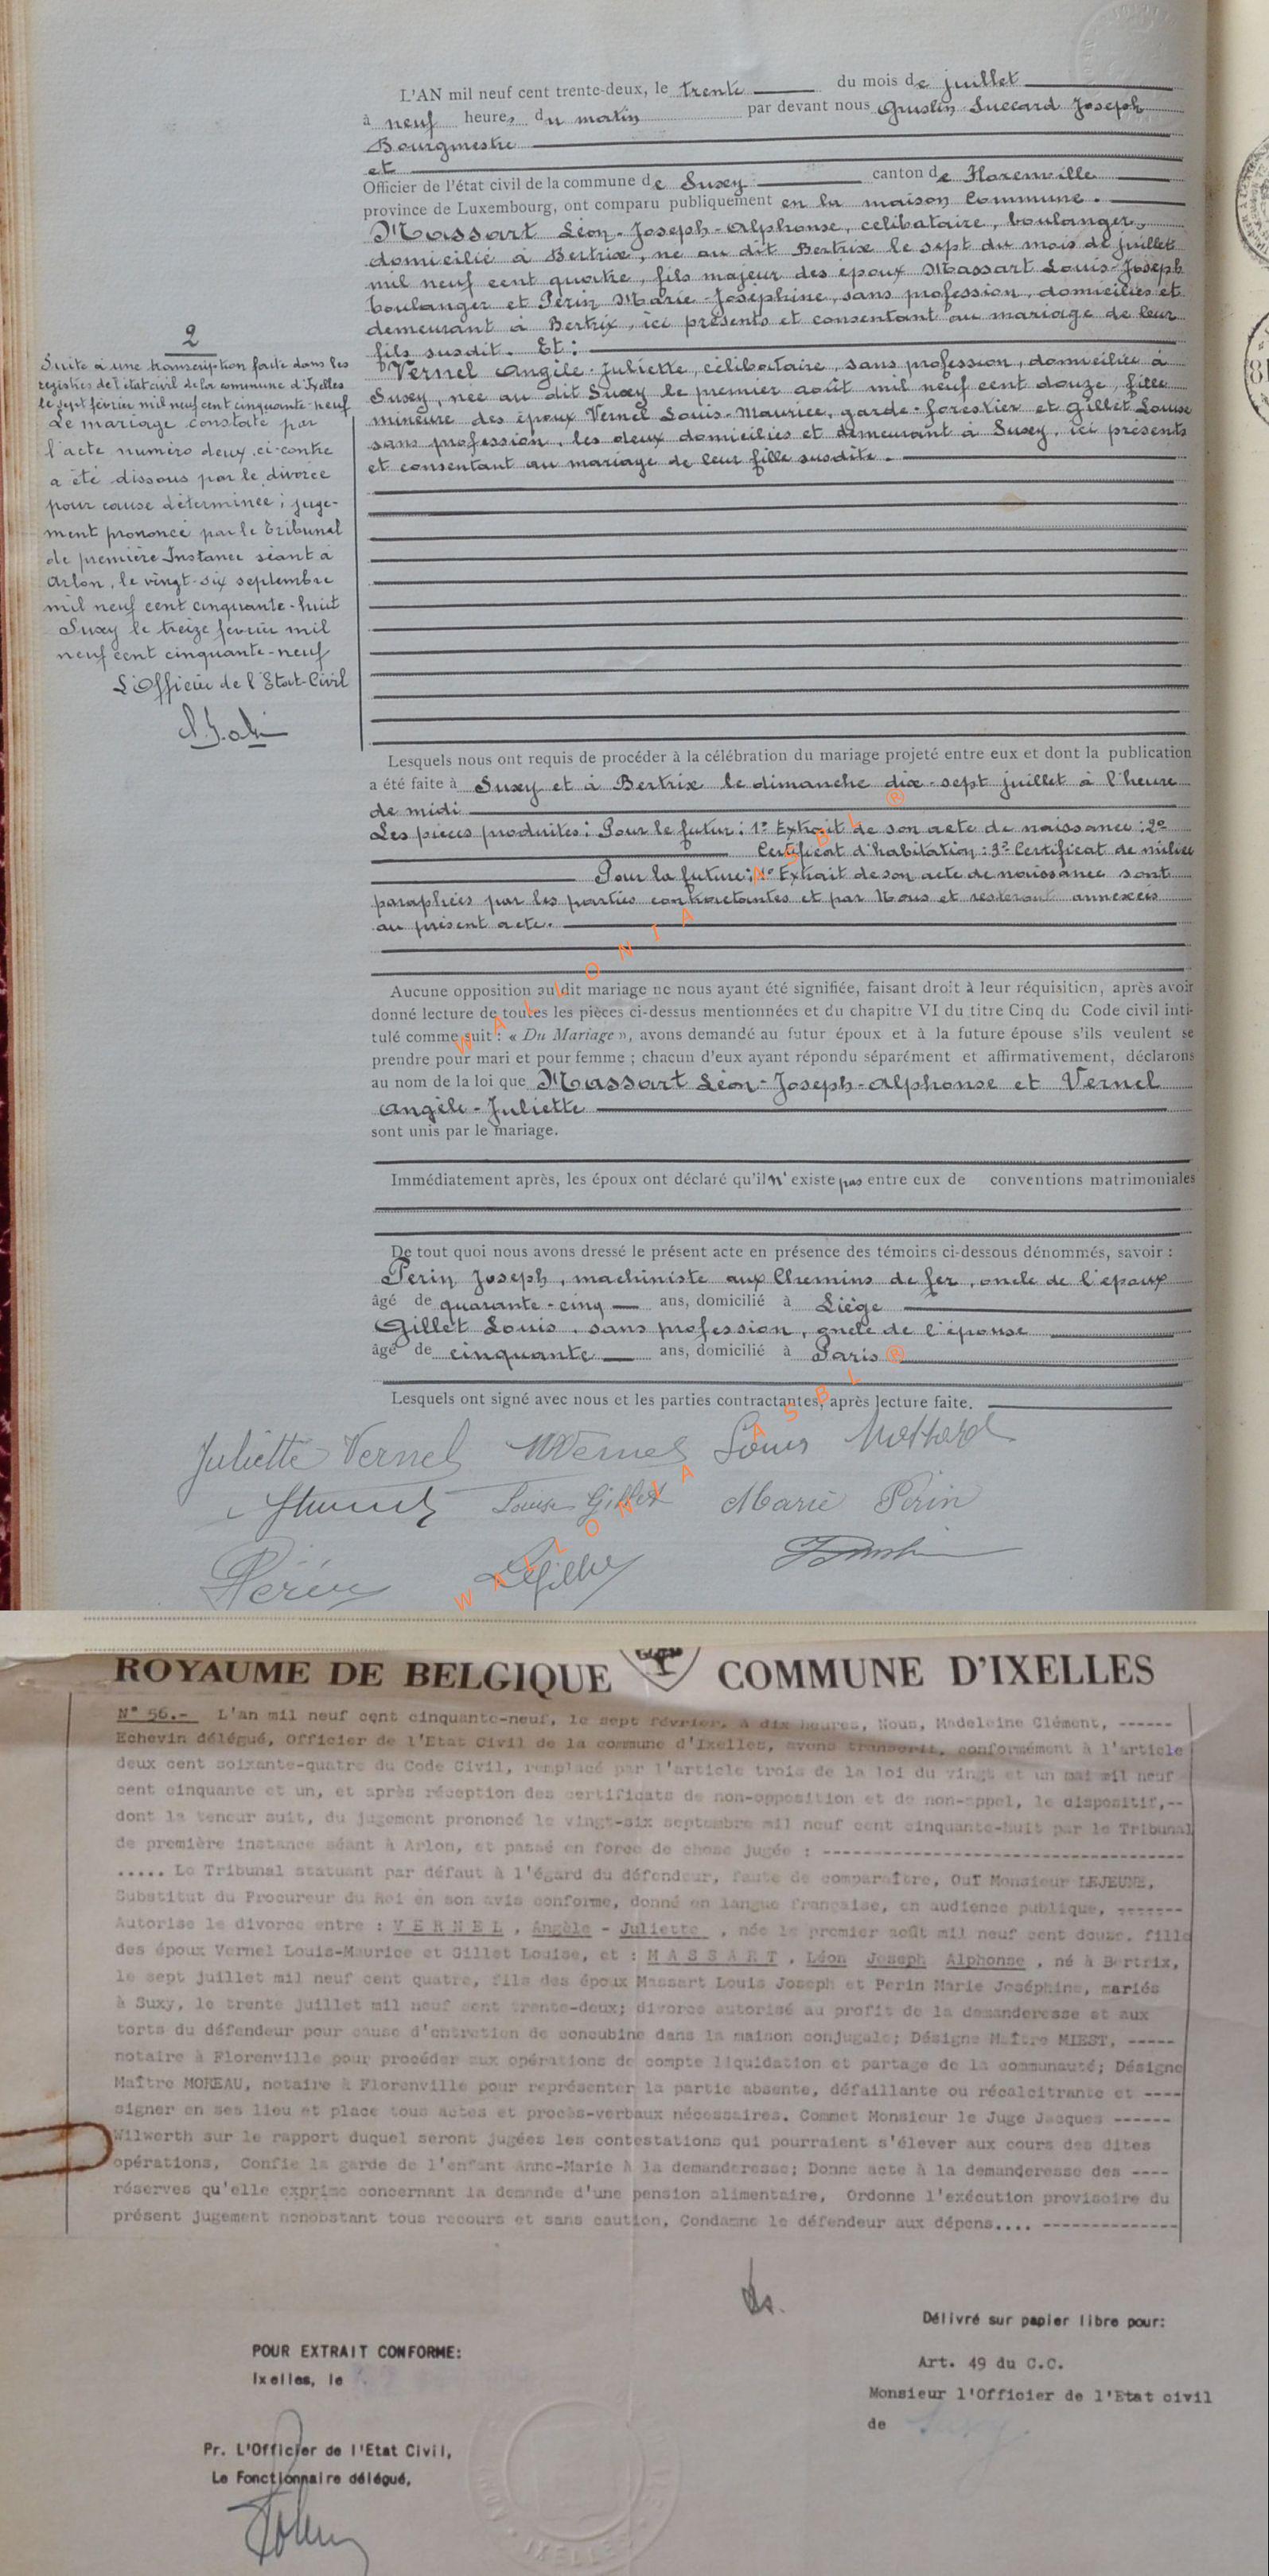 L'AN mil neuf cent trente-deux, le trente du mois de juillet
à neuf heures du matin par devant nous Joseph
Bourgmestre
et
Officier de l'état civil de la commune de Suxy canton de Florenville
province de Luxembourg, ont comparu publiquement en la maison Commune.
Massart Léon-Joseph-Alphonse, célibataire, boulanger,
domicilié à Bertrix, né au dit Bertrix le sept du mois de juillet
mil neuf cent quatre, fils majeur des époux Massart Louis-Joseph
boulanger et Perin Marie-Joséphine, sans profession, domiciliés et
demeurant à Bertrix, ici présents et consentant au mariage de leur
fils susdit. Et:
Vernel Angèle-Juliette, célibataire, sans profession, domiciliée à
Suxy, née au dit Suxy le premier août mil neuf cent douze, fille
mineure des époux Vernel Louis-Maurice, garde-forestier et Gillet Louise
sans profession, les deux domiciliés et demeurant à Suxy, ici présents
et consentant au mariage de leur fille susdite.
2
Suite à une transcription faite dans les
registres de l'état civil de la commune d'Ixelles
le sept février mil neuf cent cinquante-neuf
Le mariage constaté par
l'acte numéro deux ci-contre
a été dissous par le divorce
pour cause déterminée; juge-
ment prononcé par le Tribunal
de première Instance séant à
Arlon, le vingt-six septembre
mil neuf cent cinquante-huit
Suxy le treize février mil
neuf cent cinquante-neuf
L'Officier de l'Etat-Civil
Lesquels nous ont requis de procéder à la célébration du mariage projeté entre eux et dont la publication
a été faite à Suxy et à Bertrix le dimanche dix-sept juillet à l'heure
de midi
Les pièces produites: Pour le futur: 1º Extrait de son acte de naissance: 2º
Certificat d'habitation: 3º Certificat de milice
Pour la future: 1º Extrait de son acte de naissance sont
paraphées par les parties contractantes et par Nous et resteront annexées
au présent acte.
Aucune opposition au dit mariage ne nous ayant été signifiée, faisant droit à leur réquisition, après avoir
donné lecture de toutes les pièces ci-dessus mentionnées et du chapitre VI du titre Cinq du Code civil inti-
tulé comme suit : « Du Mariage », avons demandé au futur époux et à la future épouse s'ils veulent se
prendre pour mari et pour femme ; chacun d'eux ayant répondu séparément et affirmativement, déclarons
au nom de la loi que Massart Léon-Joseph-Alphonse et Vernel
Angèle-Juliette
sont unis par le mariage.
Immédiatement après, les époux ont déclaré qu'il n'existe pas entre eux de conventions matrimoniales
De tout quoi nous avons dressé le présent acte en présence des témoins ci-dessous dénommés, savoir :
Perin Joseph, machiniste aux Chemins de fer, oncle de l'époux
âgé de quarante-cinq ans, domicilié à Liège
Gillet Louis, sans profession, oncle de l'épouse
âgé de cinquante ans, domicilié à Paris
Lesquels ont signé avec nous et les parties contractantes, après lecture faite.
Juliette Vernel MVernel Louis Massard
Louise Gillet Marie Périn
Périn LGillet
WALLONIA ASBL ®
WALLONIA ASBL ®
ROYAUME DE BELGIQUE COMMUNE D'IXELLES
N° 56.- L'an mil neuf cent cinquante-neuf, le sept février, à dix heures, Nous, Madeleine Clément, ------
Echevin délégué, Officier de l'Etat Civil de la commune d'Ixelles, avons transcrit, conformément à l'article
deux cent soixante-quatre du Code Civil, remplacé par l'article trois de la loi du vingt et un mai mil neuf
cent cinquante et un, et après réception des certificats de non-opposition et de non-appel, le dispositif,--
dont la teneur suit, du jugement prononcé le vingt-six septembre mil neuf cent cinquante-huit par le Tribunal
de première instance séant à Arlon, et passé en force de chose jugée : ------------------------------------
..... Le Tribunal statuant par défaut à l'égard du défendeur, faute de comparaître, Ouï Monsieur LEJEUNE,
Substitut du Procureur du Roi en son avis conforme, donné en langue française, en audience publique, -------
Autorise le divorce entre : VERNEL, Angèle - Juliette , née le premier août mil neuf cent douze, fille
des époux Vernel Louis-Maurice et Gillet Louise, et : MASSART, Léon Joseph Alphonse , né à Bertrix,
le sept juillet mil neuf cent quatre, fils des époux Massart Louis Joseph et Perin Marie Joséphine, mariés
à Suxy, le trente juillet mil neuf cent trente-deux; divorce autorisé au profit de la demanderesse et aux
torts du défendeur pour cause d'entretien de concubine dans la maison conjugale; Désigne Maître MIEST, -----
notaire à Florenville pour procéder aux opérations de compte liquidation et partage de la communauté; Désigne
Maître MOREAU, notaire à Florenville pour représenter la partie absente, défaillante ou récalcitrante et ----
signer en ses lieu et place tous actes et procès-verbaux nécessaires. Commet Monsieur le Juge Jacques ------
Wilwerth sur le rapport duquel seront jugées les contestations qui pourraient s'élever aux cours des dites
opérations, Confie la garde de l'enfant Anne-Marie à la demanderesse; Donne acte à la demanderesse des ----
réserves qu'elle exprime concernant la demande d'une pension alimentaire, Ordonne l'exécution provisoire du
présent jugement nonobstant tous recours et sans caution, Condamne le défendeur aux dépens.... --------------
Délivré sur papier libre pour:
POUR EXTRAIT CONFORME:
Art. 49 du C.C.
Ixelles, le
Monsieur l'Officier de l'Etat civil
de Suxy
Pr. L'Officier de l'Etat Civil,
Le Fonctionnaire délégué,
IXELLES